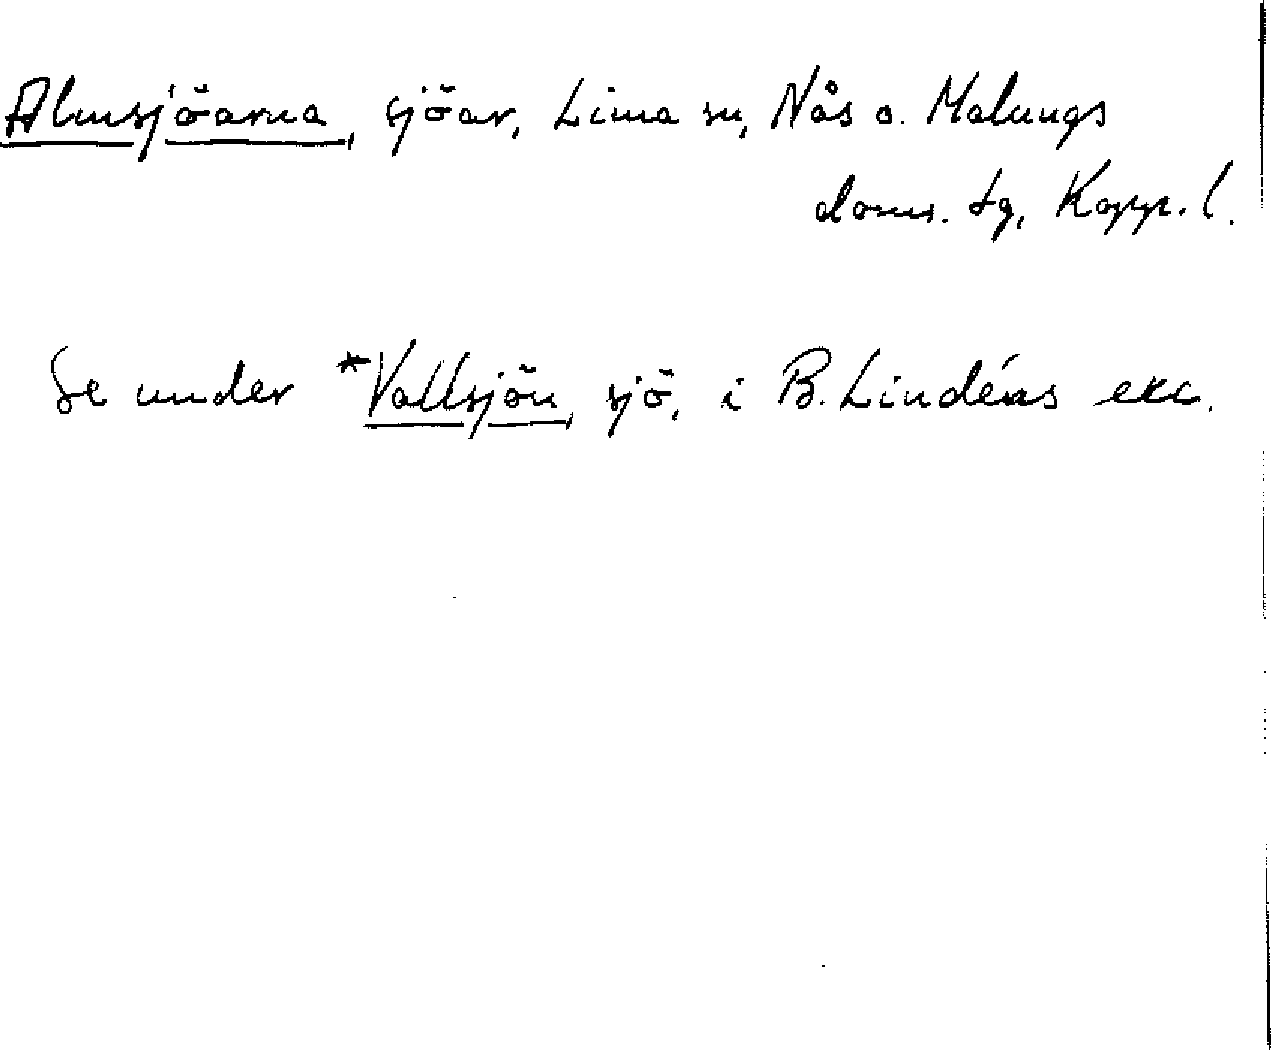 Almsjöarna, sjöar, Lima sn, Nås o. Malungs
doms. tg, Kopp. l.
Se under *Vallsjön, sjö, i B. Lindéns exc.